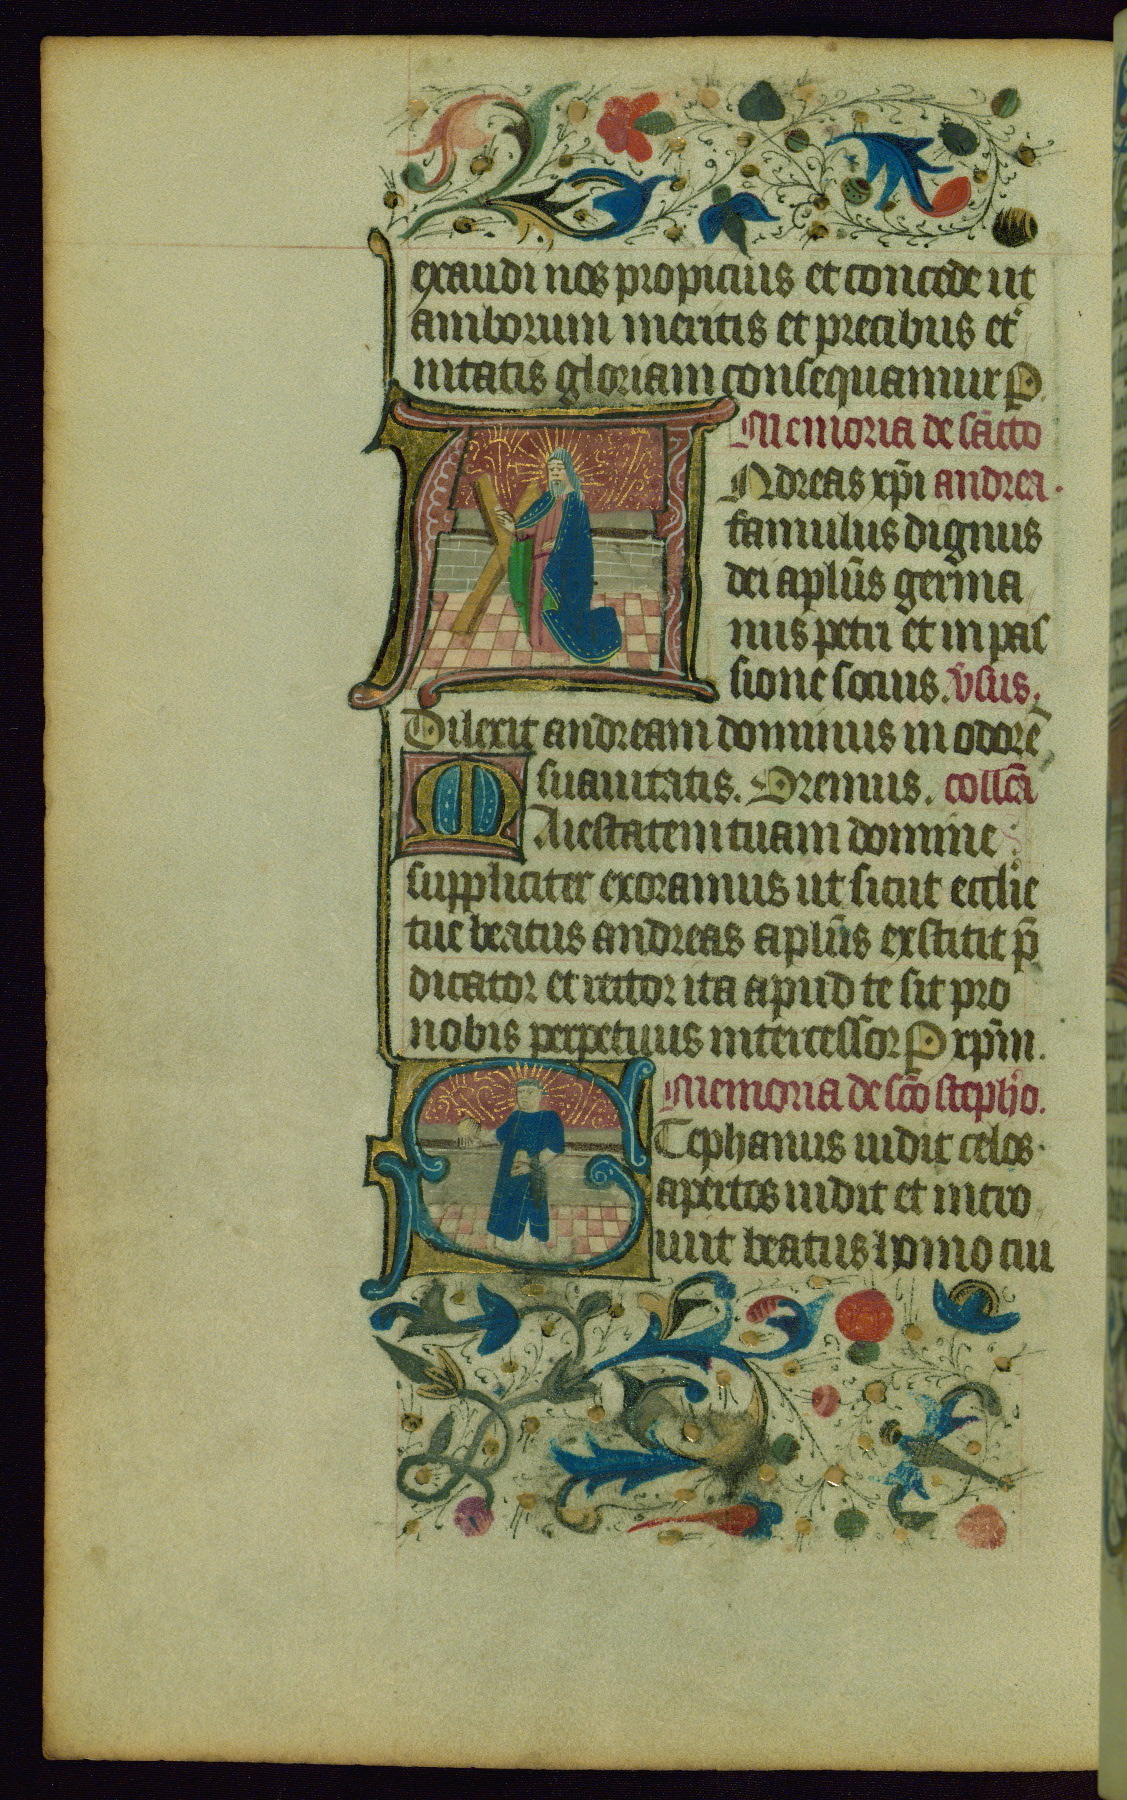 exaudi nos propicius et concede ut
amborum meritis et precibus et᷑
nitatis gloriam consequamur P.
Memoria de sācto
ANdreas xp̄i andrea.
famulus dignus
dei aplūs germa
nus petri et in pas
sione socius. v̄sus.
Dilexit andream dominus in odorē
suauitatis. Oremus. collcā
MAiestatem tuam domine
suppliciter exoramus ut sicut eccl'ie
tue beatus andreas aplūs exstitit p̄
dicator et rector ita apud te sit pro
nobis perpetuus intercessor P xp̄m.
Memoria de scō steph'o.
STephanus uidit celos
apertos uidit et intro
iuit beatus homo cui